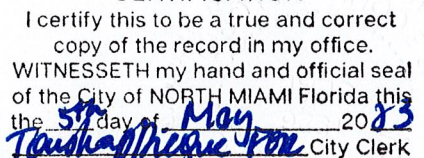 I certify this to be a true and correct
copy of the record in my office.
WITNESSETH my hand and official seal
of the City of NORTH MIAMI Florida this
the 5th day of May 2023
City Clerk